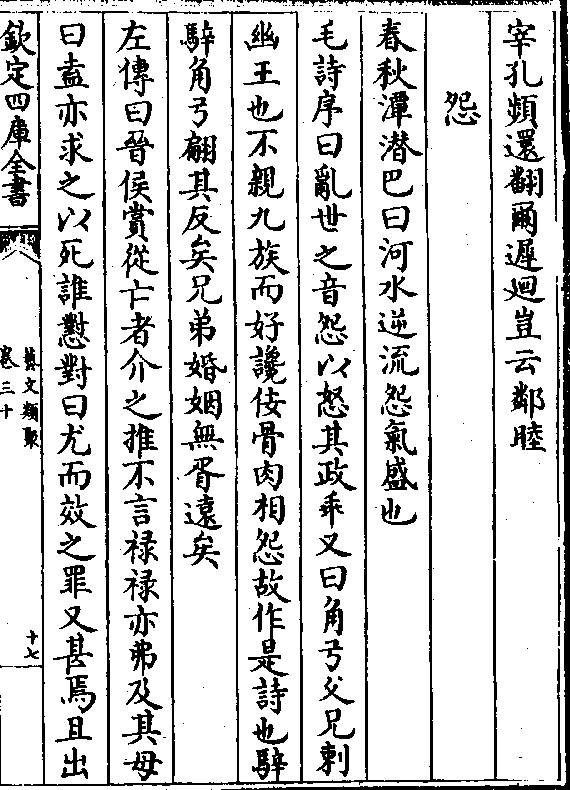 宰孔頻還翻爾遲迴豈云鄰睦
怨
春秋潭潜巴曰河水逆流怨氣盛也
毛詩序曰亂世之音怨以怒其政乖又曰角弓父兄刺
幽王也不親九族而好讒佞骨肉相怨故作是詩也騂
騂角弓翩其反矣兄弟婚姻無胥遠矣
左傳曰晉侯賞從亡者介之推不言禄禄亦弗及其母
曰盍亦求之以死誰懟對曰尤而效之罪又甚焉且出
欽定四庫全書
藝文類聚
卷三十
十七